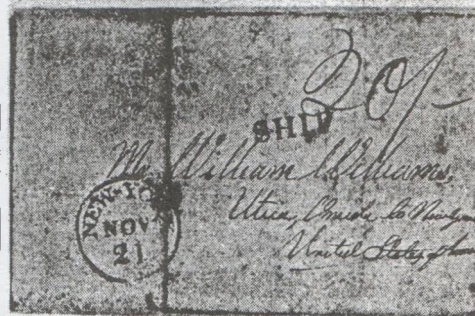 20/-
SHIP
Mr William Williams,
Utica, Oneida Co Newy
United States of
NEW-YO
NOV
21